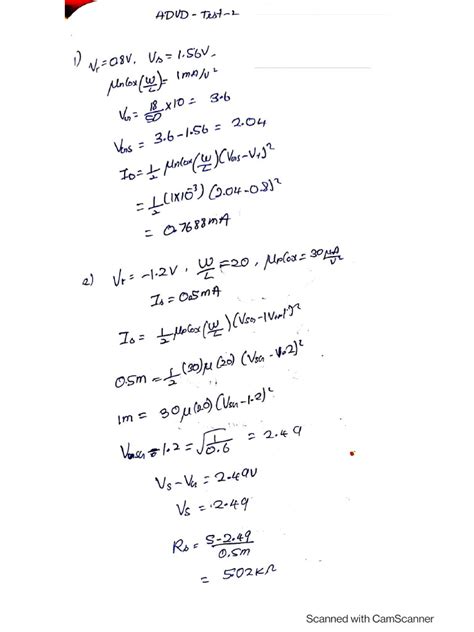 ADVD - Test-2
1) Vt = 0.8V, Vs = 1.56V.
μnCox(W/L) = 1mA/V²
VG = 18/50 × 10 = 3.6
VGS = 3.6 - 1.56 = 2.04
ID = 1/2 μnCox(W/L)(VGS - Vt)²
= 1/2 (1×10⁻³)(2.04 - 0.8)²
= 0.7688mA
2) Vt = -1.2V, W/L = 20, μpCox = 30 μA/V²
ID = 0.5mA
ID = 1/2 μpCox(W/L)(VSG - |Vtp|)²
0.5m = 1/2 (30)μ(20)(VSG - 1.2)²
1m = 30μ(20)(VSG - 1.2)²
VSG - 1.2 = √(1/0.6) = 2.49
VS - VG = 2.49V
VS = 2.49
Rs = 5-2.49/0.5m
= 5.02KΩ
Scanned with CamScanner